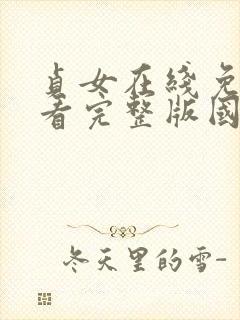 貞女在綫免
看完整版國
冬天里的雪-